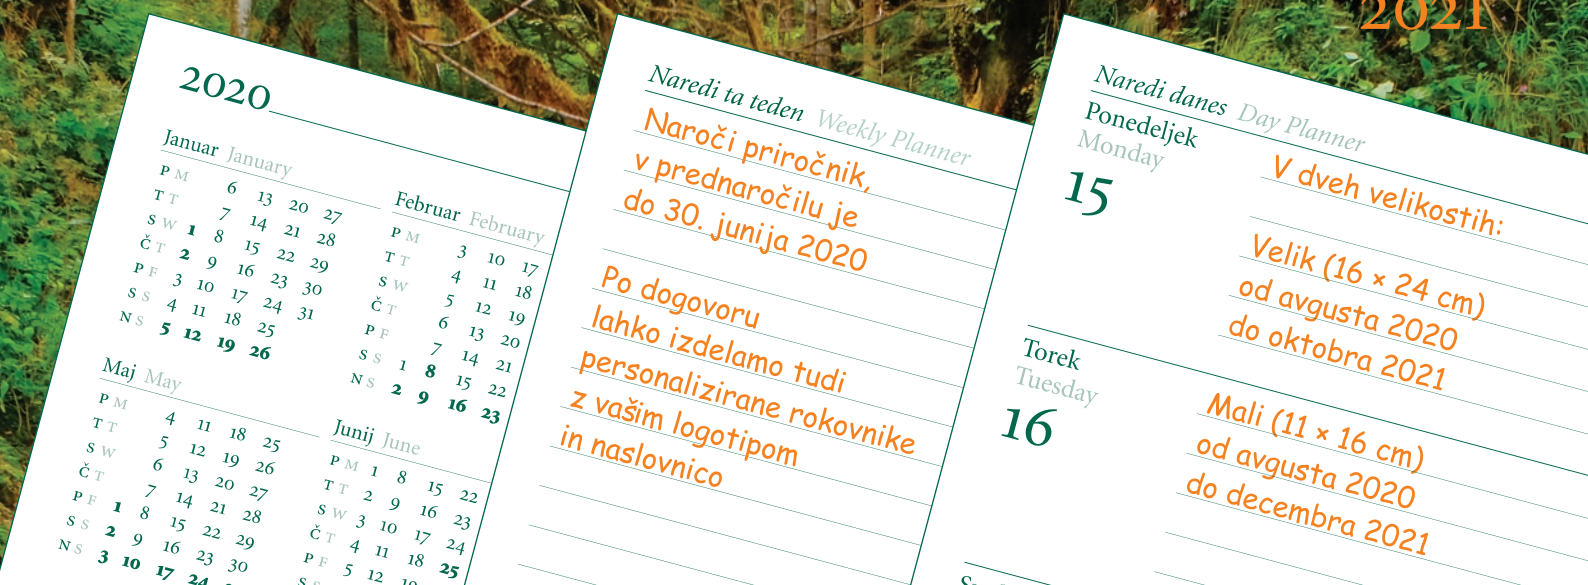 2021
2020
Januar January
P M 6 13 20 27
T T 7 14 21 28
S W 1 8 15 22 29
Č T 2 9 16 23 30
P F 3 10 17 24 31
S S 4 11 18 25
N S 5 12 19 26
Februar February
P M 3 10 17
T T 4 11 18
S W 5 12 19
Č T 6 13 20
P F 7 14 21
S S 1 8 15 22
N S 2 9 16 23
Maj May
P M 4 11 18 25
T T 5 12 19 26
S W 6 13 20 27
Č T 7 14 21 28
P F 1 8 15 22 29
S S 2 9 16 23 30
N S 3 10 17 24
Junij June
P M 1 8 15 22
T T 2 9 16 23
S W 3 10 17 24
Č T 4 11 18 25
P F 5 12
S
Naredi ta teden Weekly Planner
Naroči priročnik,
v prednaročilu je
do 30. junija 2020
Po dogovoru
lahko izdelamo tudi
personalizirane rokovnike
z vašim logotipom
in naslovnico
Naredi danes Day Planner
Ponedeljek
Monday
15
V dveh velikostih:
Velik (16 × 24 cm)
od avgusta 2020
do oktobra 2021
Torek
Tuesday
16
Mali (11 × 16 cm)
od avgusta 2020
do decembra 2021